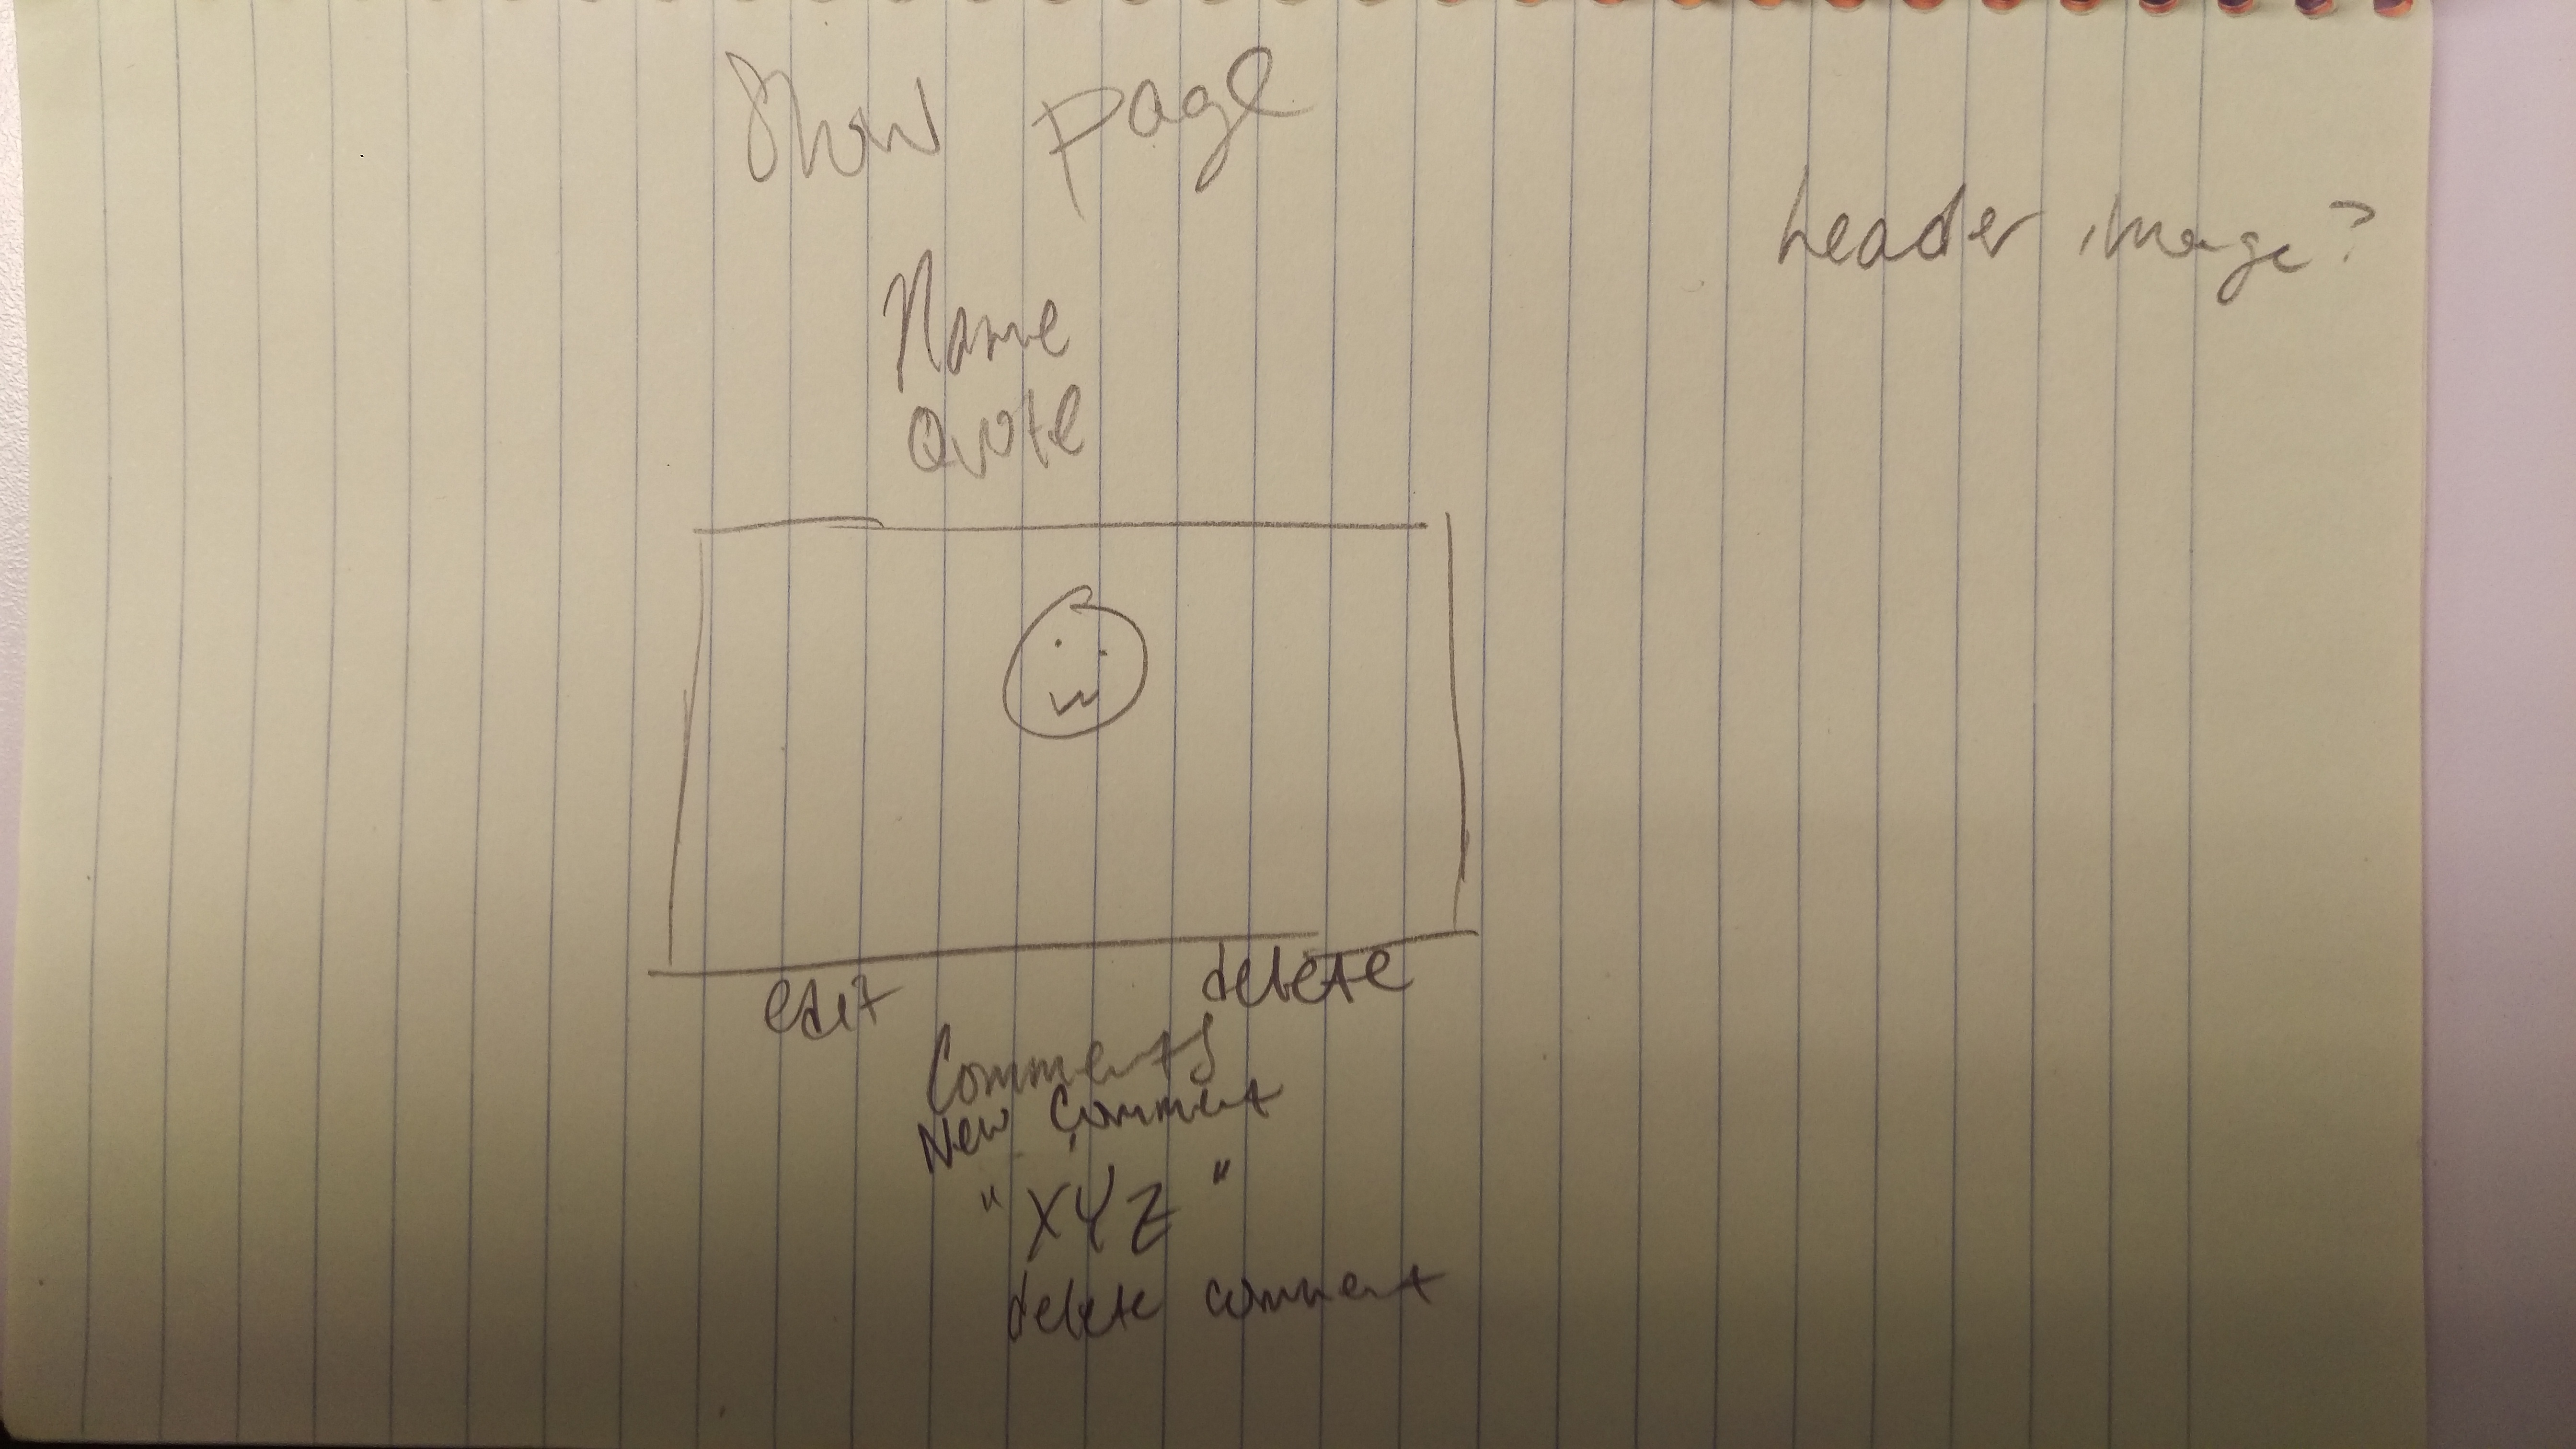 Show page
header image?
Name
Quote
edit
delete
Comments
New Comment
"XYZ"
delete comment